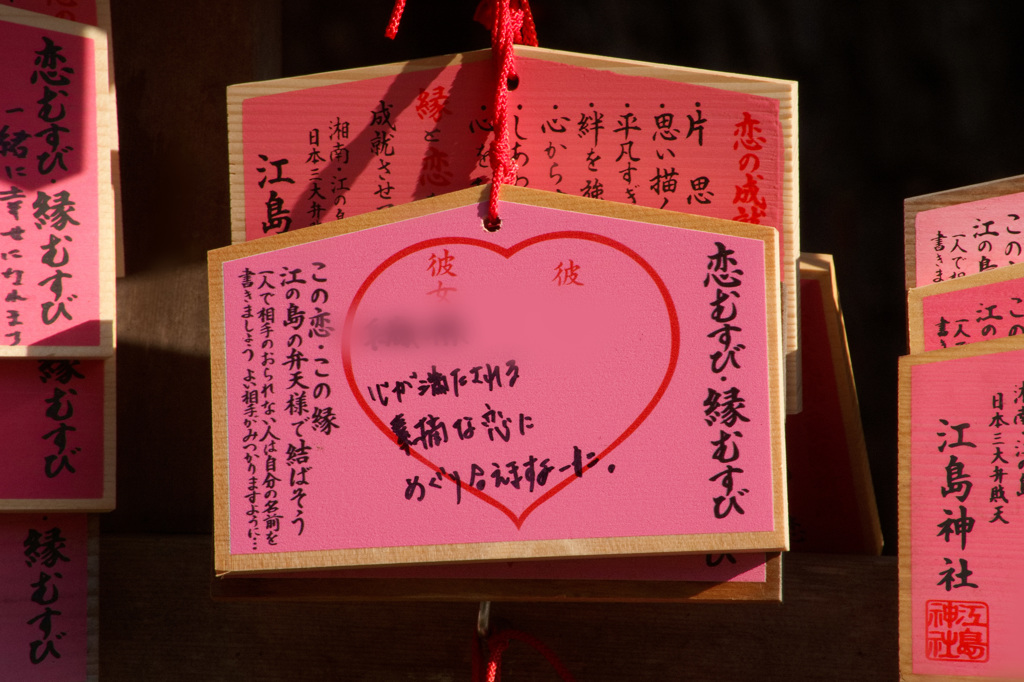 恋むすび・縁むすび
彼
彼女
心が満たされる
素摘な恋に
めぐり合えますよーに。
この恋・この縁
江の島の弁天様で結ばそう
一人で相手のおられない人は自分の名前を
書きましょう よい相手がみつかりますように…
恋の成就
片思
・思い描く
・平凡すぎ
・絆を強
・心から
・しあわ
・心を
縁と恋
成就させ
湘南・江の島
日本三大弁
江島
恋むすび・縁むすび
一緒に幸せになれます
縁むすび
縁むすび
この
江の島
一人で相
書きま
この
江の
一人
書き
湘南・江の島
日本三大弁財天
江島神社
江島神社